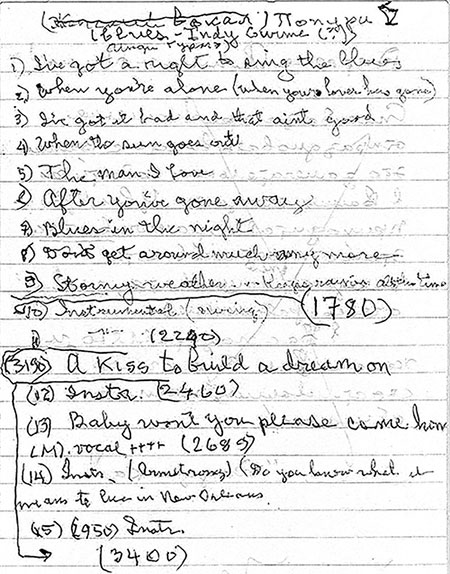 Попури V
(Blues - Indy Gurme (?))
1) I've got a right to sing the blues
2) When you're alone (when your lover has gone)
3) I've got it bad and that aint good
4) When the sun goes out
5) The man I love
6) After you've gone away
7) Blues in the night
8) Dont get around much any more
9) Stormy weather... Keeps rainin all the time
10) Instrumental (swing) (1780)
11) -"- (2240)
(3190) A Kiss to build a dream on
(12) Instr. (2460)
(13) Baby won't you please come home
(M). vocal ++++ (2685)
(14) Instr. (Armstrong) (Do you know what it
means to live in New Orleans.
(15) (2950) Instr.
(3400)